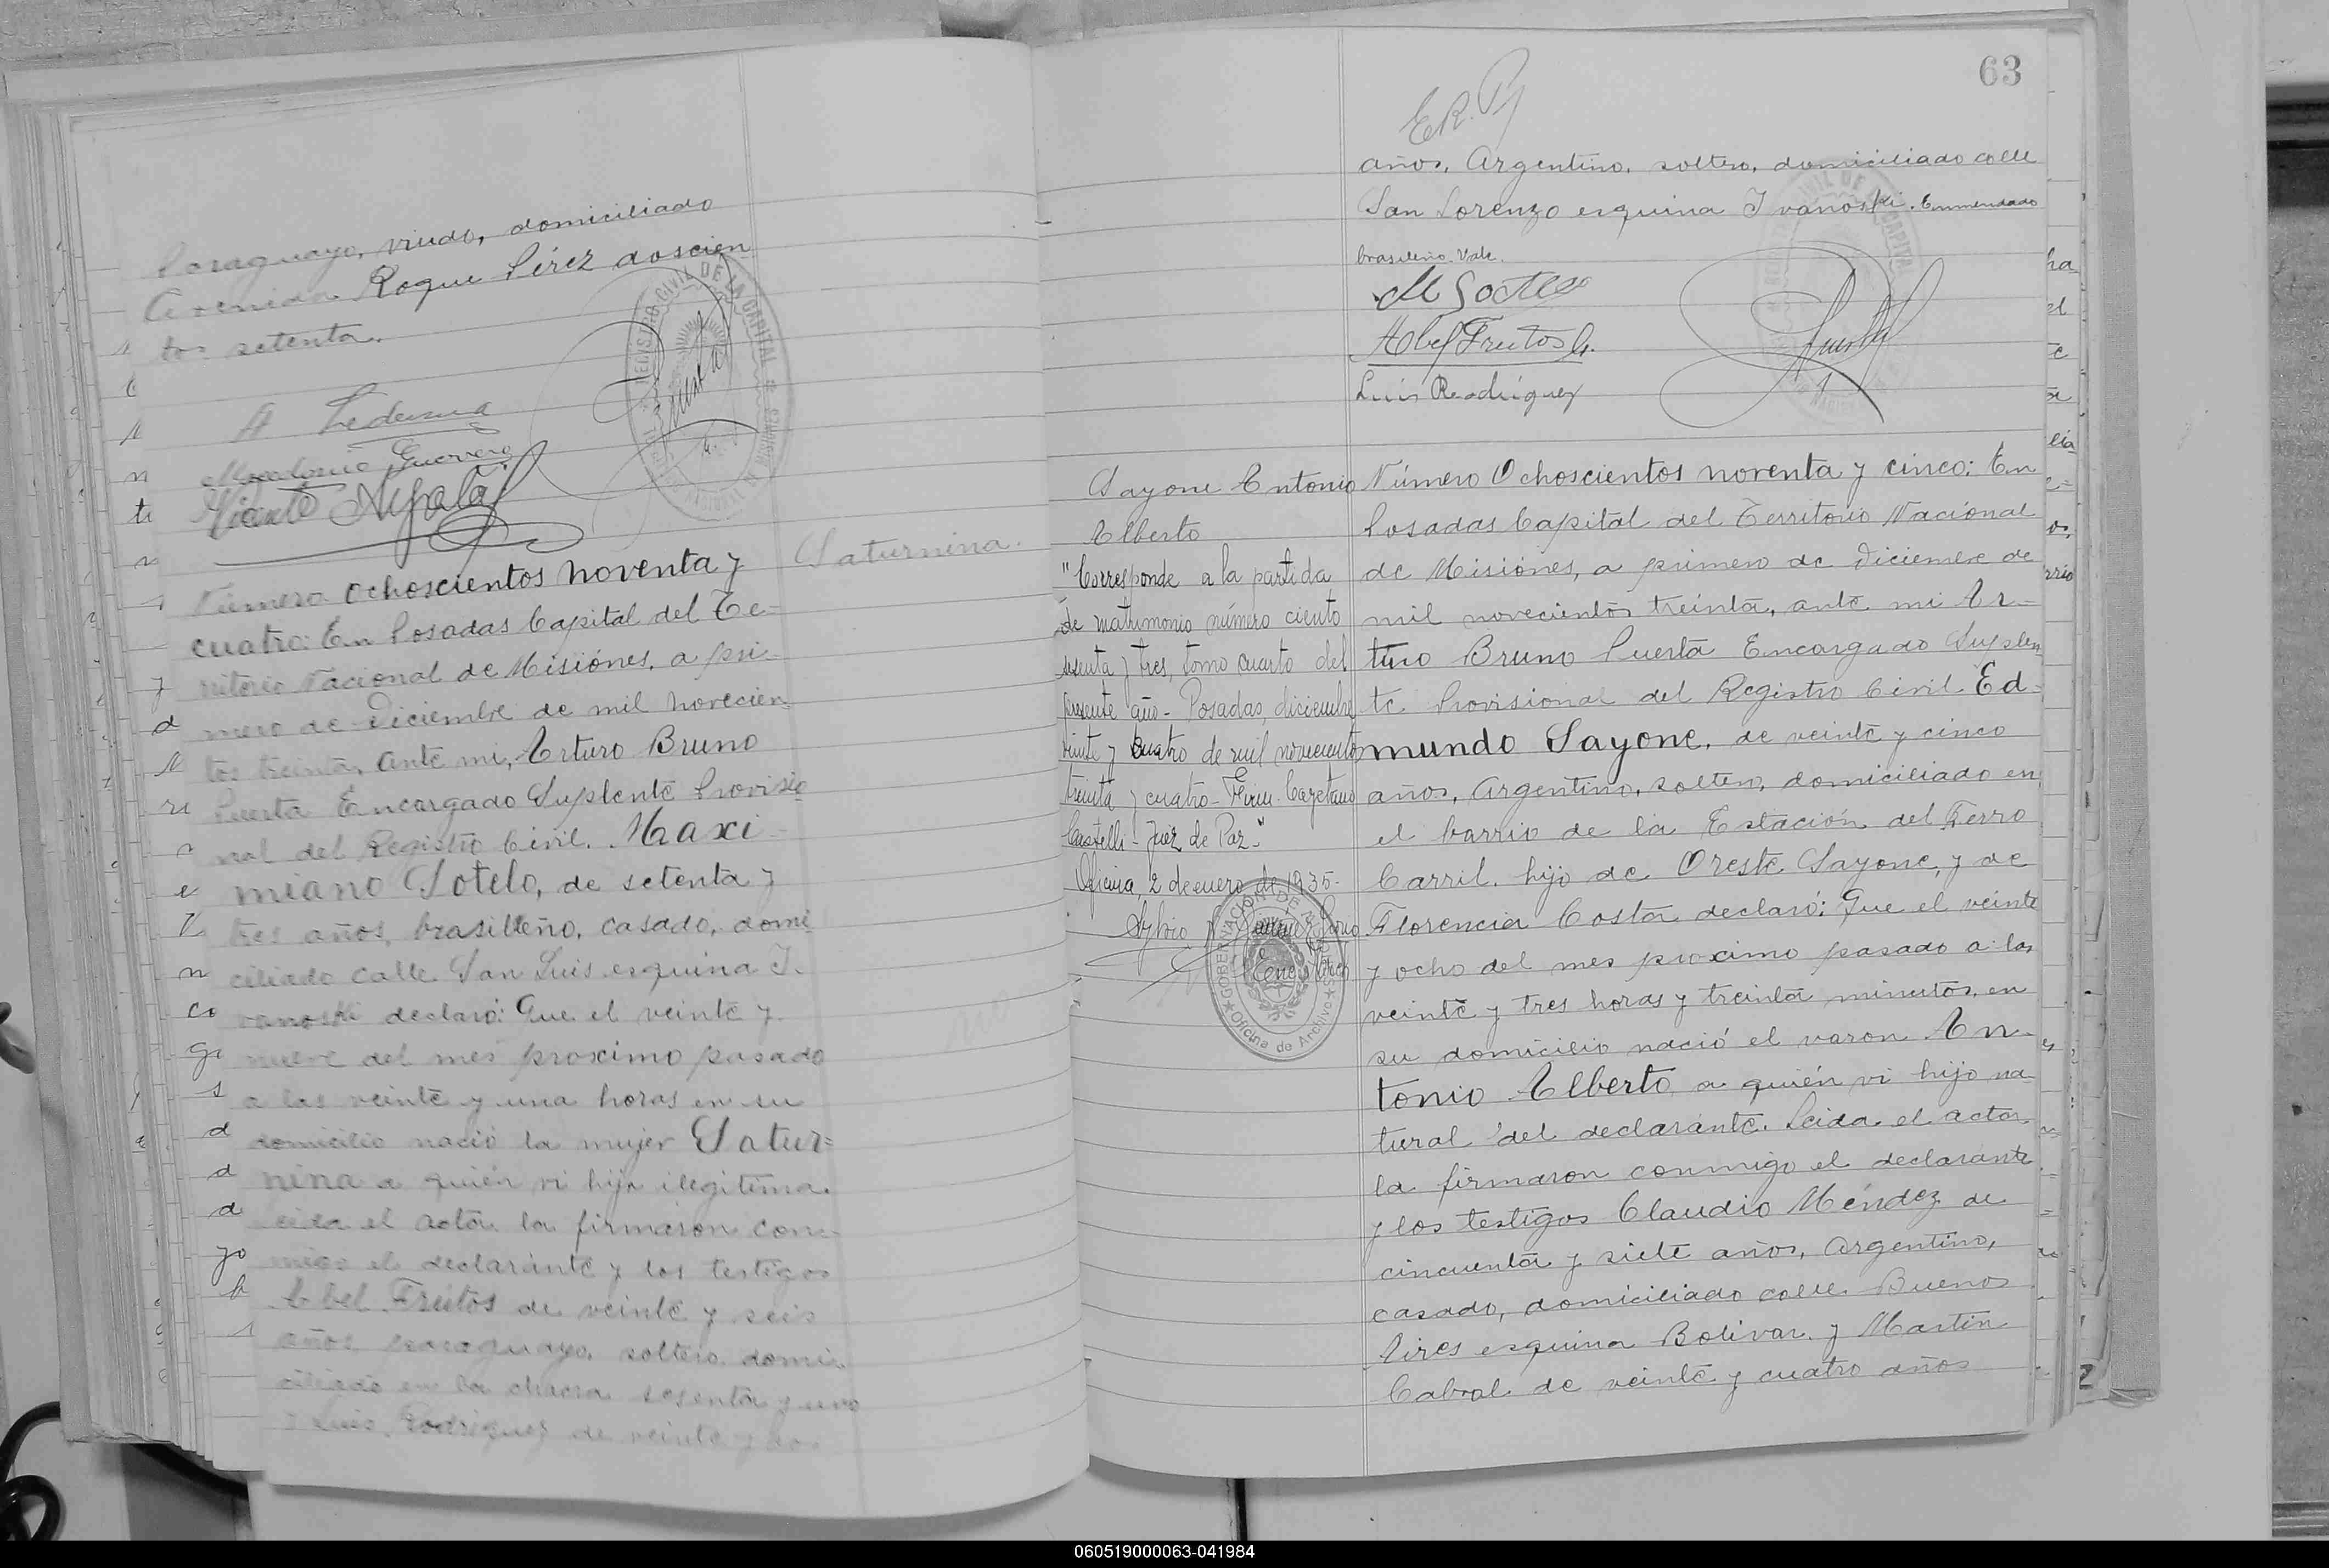 Paraguayo, viudo, domiciliado
Avenida Roque Pérez doscien
tos setenta.
A Ledesma
Macedonio Guerrero
Vicente Ayala
REGISTRO CIVIL DE LA CAPITAL
Número Ochoscientos noventa y
Saturnina.
cuatro: En Posadas Capital del Te-
rritorio Nacional de Misiónes, a pri-
mero de Diciembre de mil novecien
tos treinta, ante mi, Arturo Bruno
Puerta Encargado Suplente Provisio
nal del Registro Civil. Maxi-
miano Sotelo, de setenta y
tres años, brasileño, casado, domi
ciliado calle San Luis esquina I-
vanoski declaró: Que el veinte y
nueve del mes proximo pasado
a las veinte y una horas en su
domicilio nació la mujer Satur=
nina a quién vi hija ilegitima.
Leida el acta la firmaron con-
migo el declarante y los testigos
Abel Frutos de veinte y seis
años, paraguayo, soltero, domi-
ciliado en la chacra sesenta y uno
y Luis Rodriguez de veinte y dos
63
E.R.P.
años, Argentino, soltero, domiciliado calle
San Lorenzo esquina Ivanoski. Enmendado
brasileño. Vale.
M Sotelo
Abel Frutos G.
Luis Rodriguez
Puerta
Sayone Antonio
Alberto
"Corresponde a la partida
de matrimonio número ciento
sesenta y tres, tomo cuarto del
presente año- Posadas, diciembre
veinte y cuatro de mil novecientos
treinta y cuatro- Firm. Cayetano
Castelli- Juez de Paz-"
Oficina, 2 de enero de 1935-
GOBERNACION DE MISIONES
Oficina de Archivo
Número Ochoscientos noventa y cinco: En
Posadas Capital del Territorio Nacional
de Misiónes, a primero de Diciembre de
mil novecientos treinta, ante mi Ar-
turo Bruno Puerta Encargado Suplen
te Provisional del Registro Civil Ed-
mundo Sayone, de veinte y cinco
años, Argentino, soltero, domiciliado en
el barrio de la Estación del Ferro
Carril, hijo de Oreste Sayone, y de
Florencia Costa declaró: Que el veinte
y ocho del mes proximo pasado a las
veinte y tres horas y treinta minutos, en
su domicilio nació el varon An-
tonio Alberto a quién vi hijo na-
tural del declarante. Leida el acta
la firmaron conmigo el declarante
y los testigos Claudio Méndez de
cincuenta y siete años, Argentino,
casado, domiciliado calle Buenos
Aires esquina Bolivar y Martin
Cabral de veinte y cuatro años
060519000063-041984